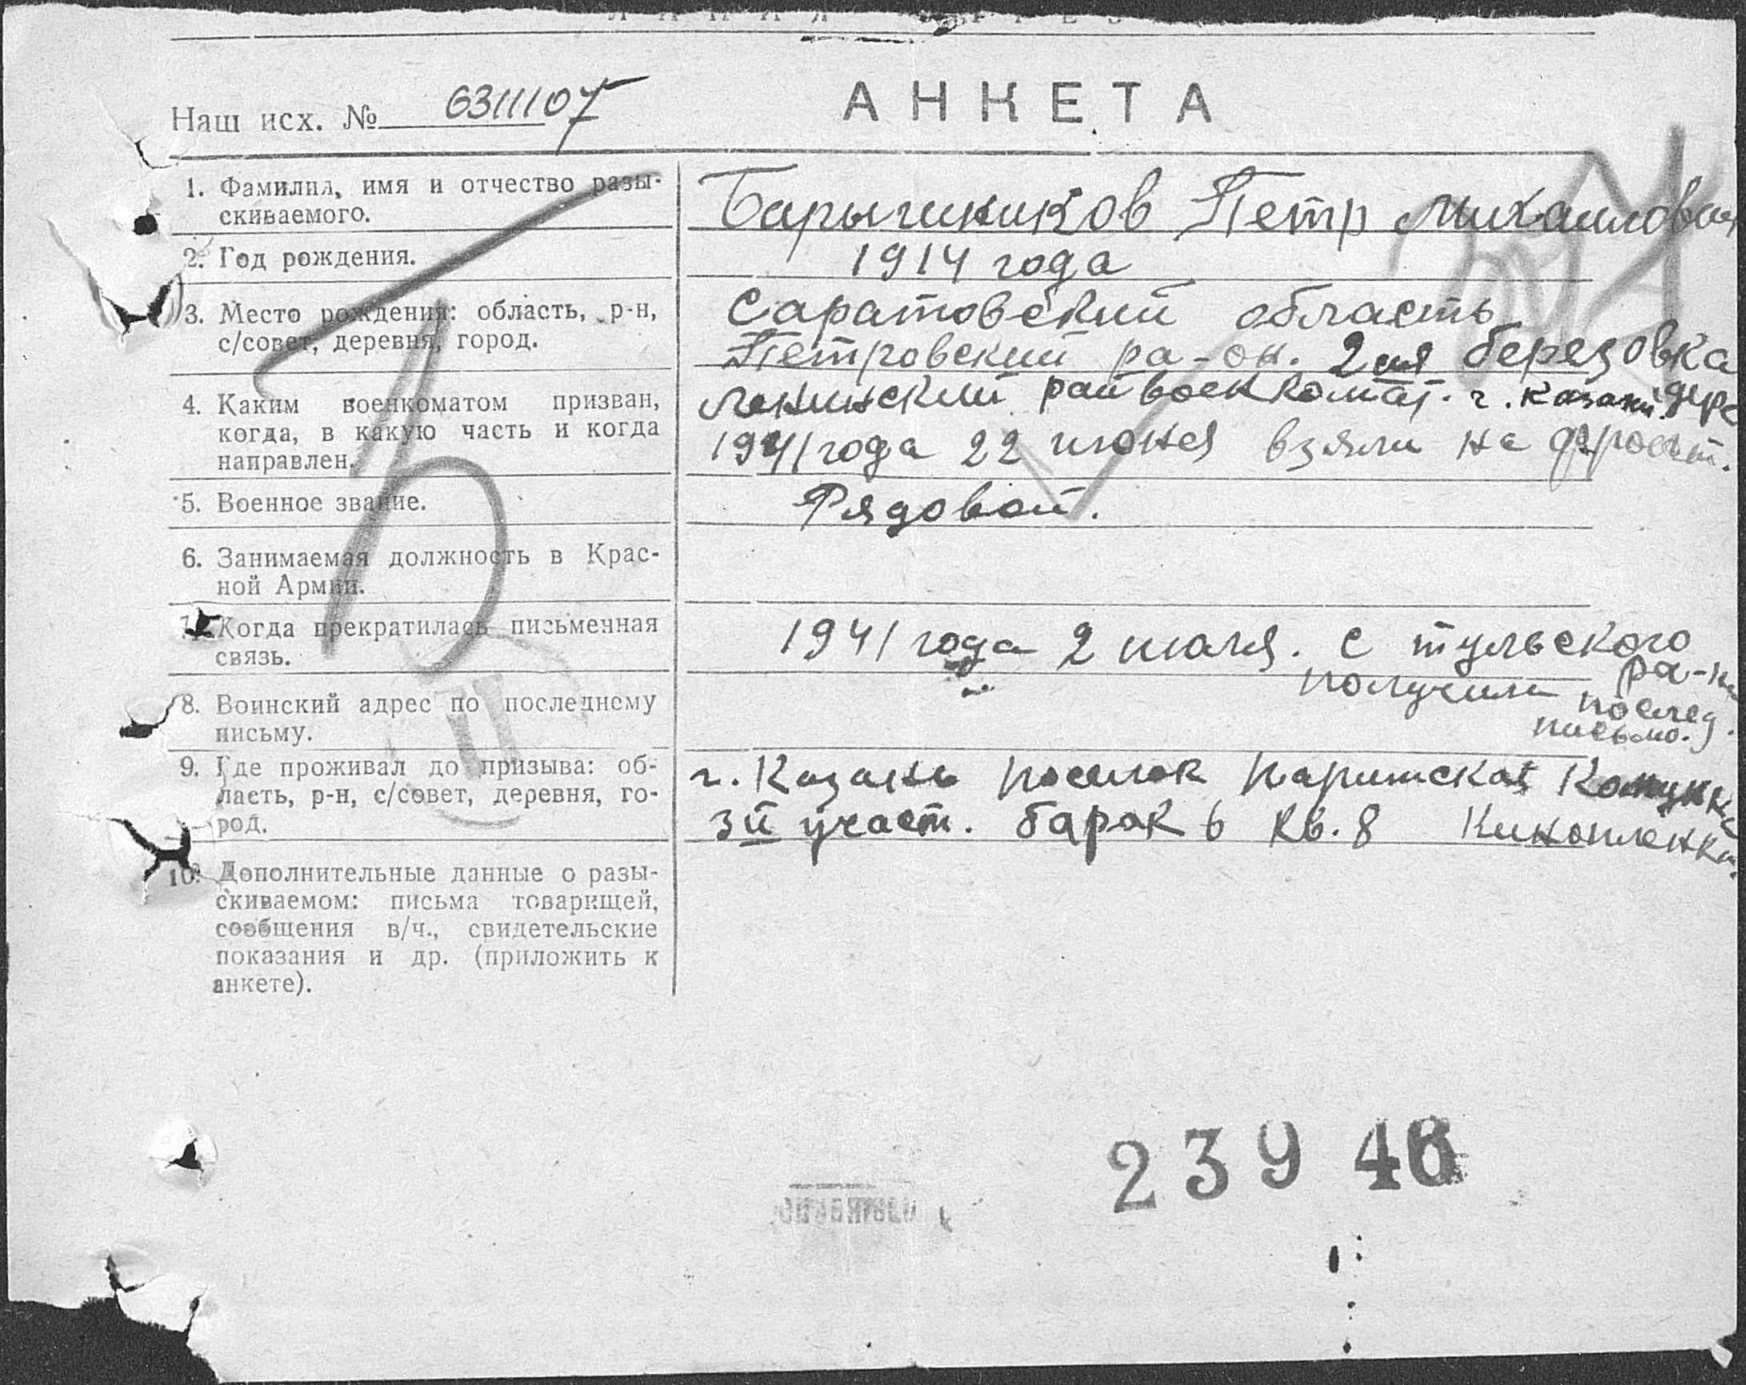 Наш исх. № 6311107
АНКЕТА
1. Фамилия, имя и отчество разы-
скиваемого.
Петр Михаилович
2. Год рождения.
1914 года
3. Место рождения: область, р-н,
с/совет, деревня, город.
Саратовский область
Петровский ра-он. 2 ая березовка
дере
4. Каким военкоматом призван,
когда, в какую часть и когда
направлен.
Ленинский райвоенкомат. г. Казани
1941 года 22 июня взяли на фронт.
5. Военное звание.
Рядовой.
6. Занимаемая должность в Крас-
ной Армии.
7. Когда прекратилась письменная
связь.
1941 года 2 июля. с тульского
ра-на
получили послед.
письмо.
8. Воинский адрес по последнему
письму.
9. Где проживал до призыва: об-
ласть, р-н, с/совет, деревня, го-
род.
г. Казань поселок Парижская Комунна
3й участ. барак 6 кв. 8
10. Дополнительные данные о разы-
скиваемом: письма товарищей,
сообщения в/ч., свидетельские
показания и др. (приложить к
анкете).
Б
23946